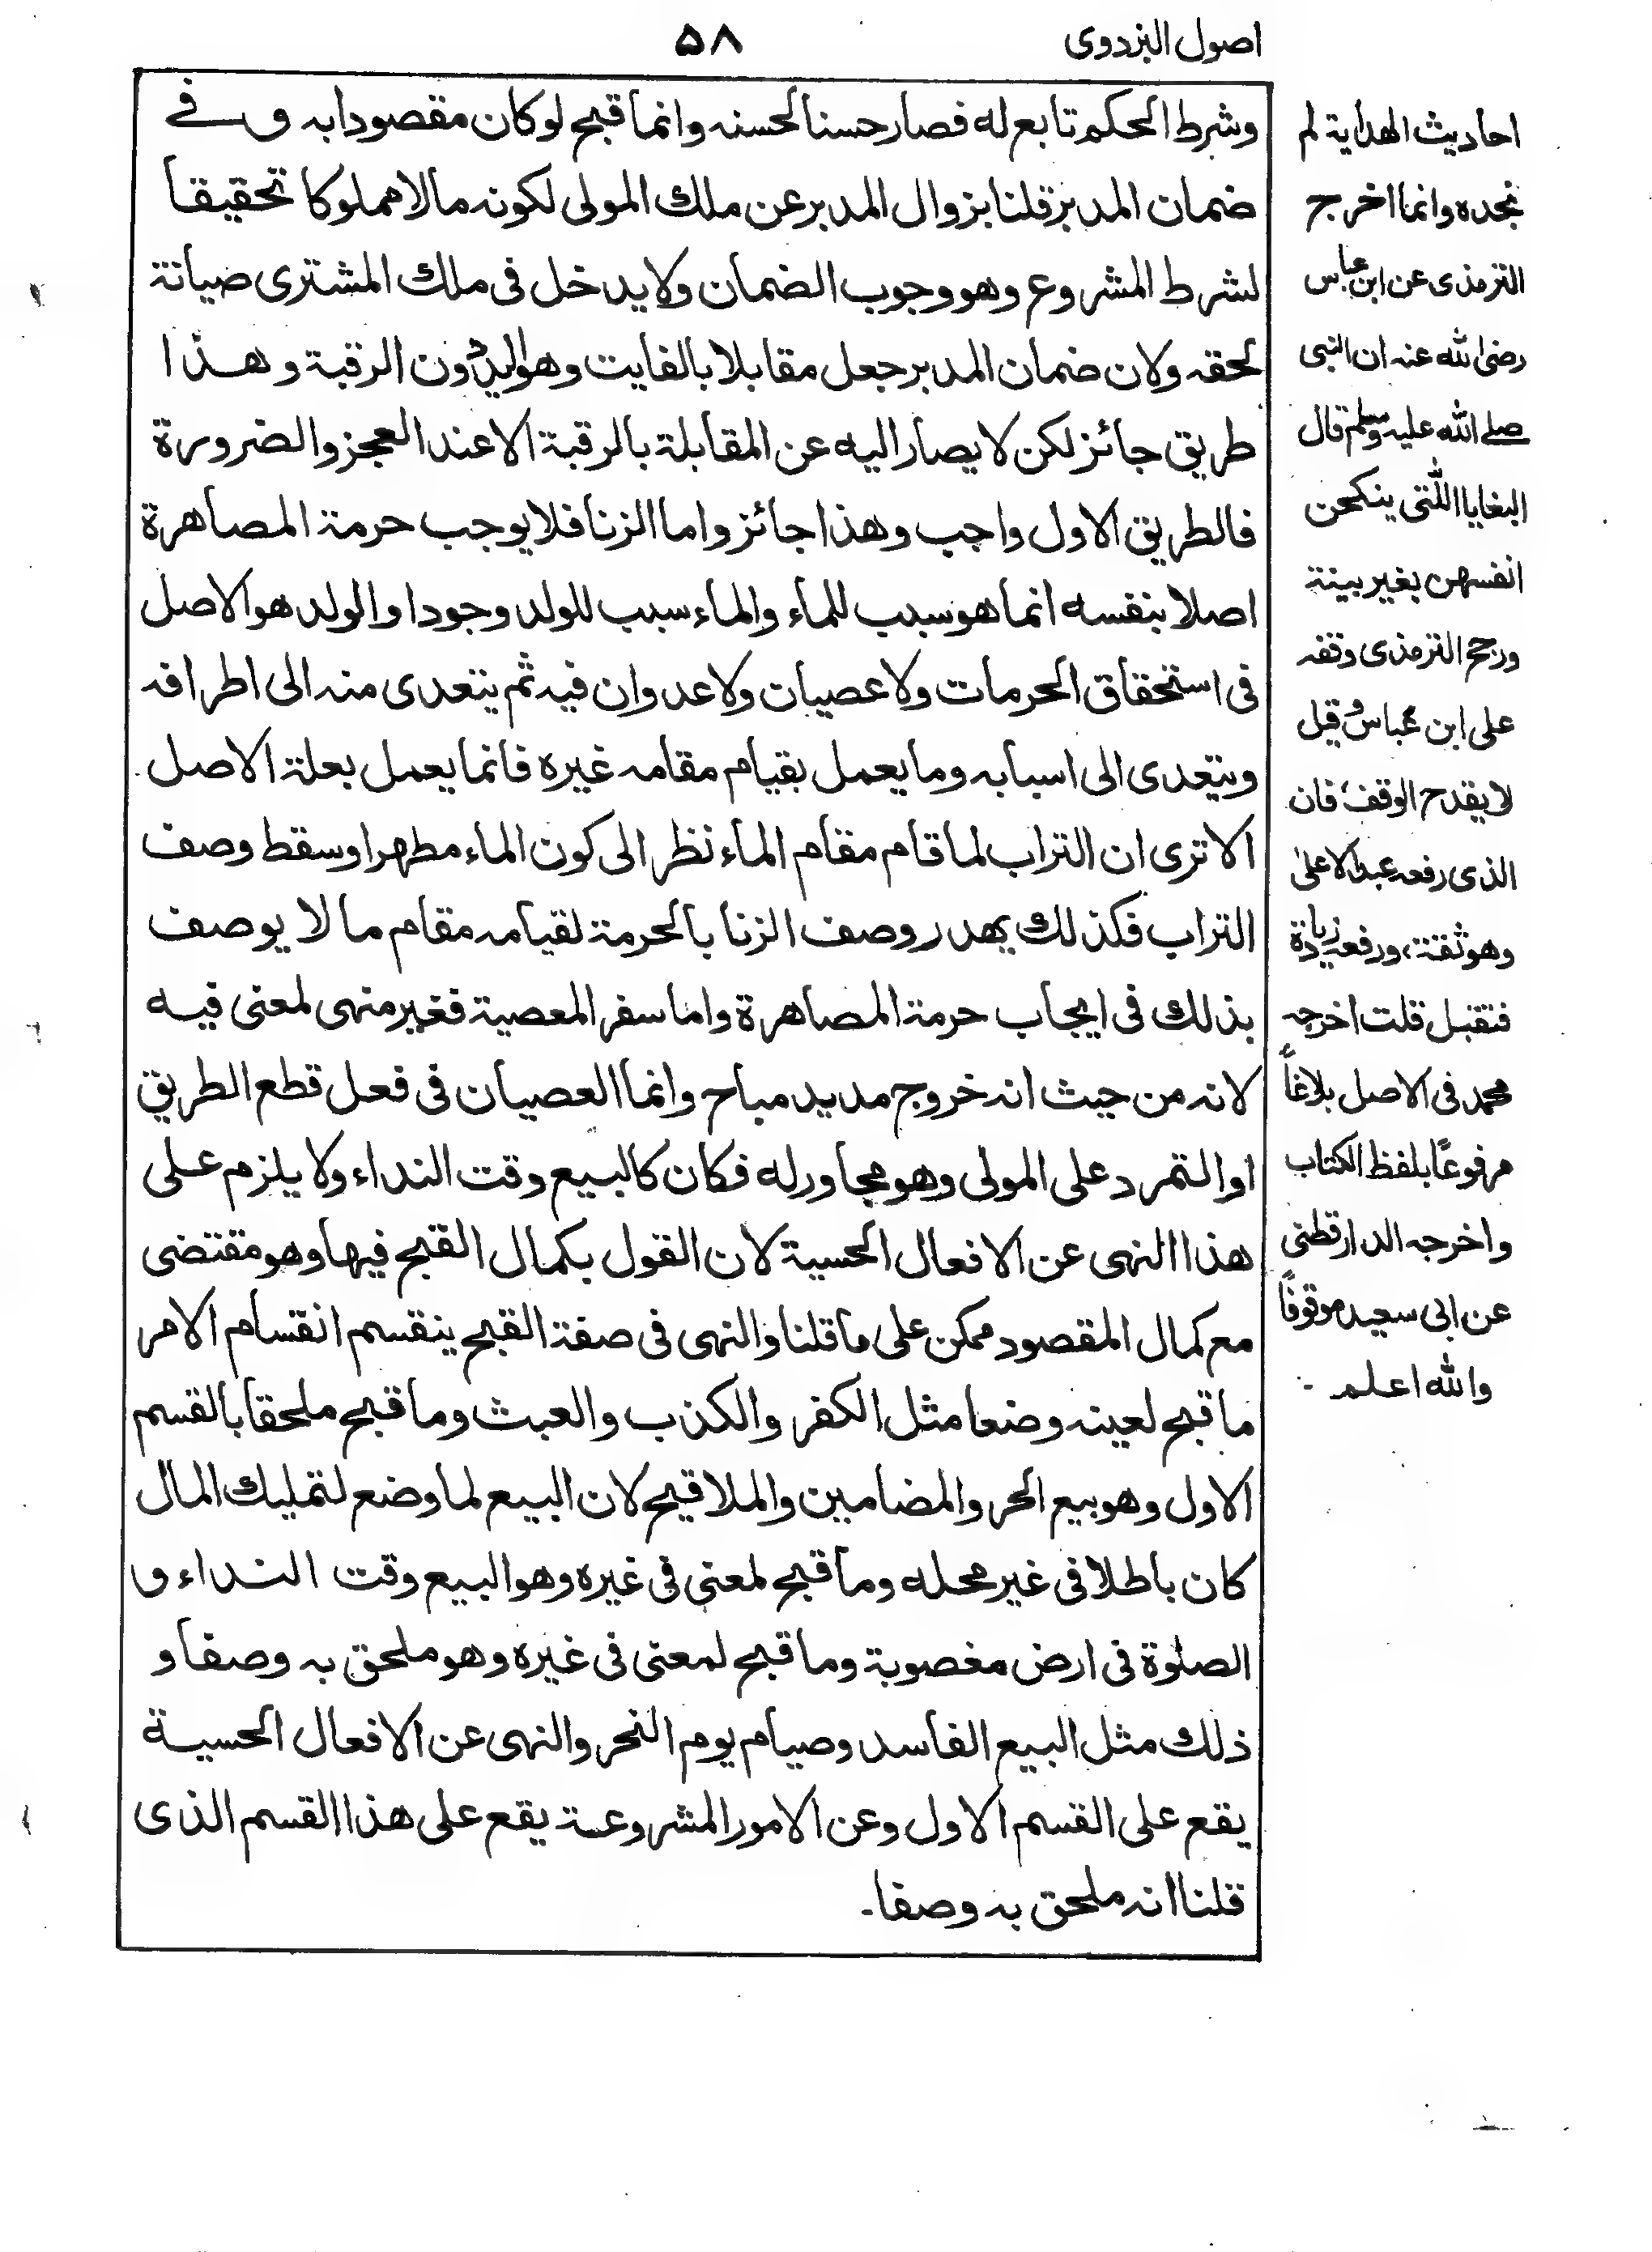 اصول البزدوی
۵۸
وشرط الحكم تابع له فصار حسنا لحسنه وانما قبح لو كان مقصودا به وفے
ضمان المدبر قلنا بزوال المدبر عن ملك المولى لكونه مالا مملوكا تحقيقا
لشرط المشروع وهو وجوب الضمان ولا يدخل فى ملك المشترى صيانة
لحقه ولان ضمان المدبر جعل مقابلا بالفايت وهو اليد دون الرقبة وهذا
طريق جائز لكن لا يصار اليه عن المقابلة بالرقبة الا عند العجز والضرورة
فالطريق الاول واجب وهذا جائز واما الزنا فلا يوجب حرمة المصاهرة
اصلا بنفسه انما هو سبب للماء والماء سبب للولد وجودا والولد هو الاصل
فى استحقاق الحرمات ولا عصيان ولا عدوان فيه ثم يتعدى منه الى اطرافه
ويتعدى الى اسبابه وما يعمل بقيام مقامه غيره فانما يعمل بعلة الاصل
الا ترى ان التراب لما قام مقام الماء نظر الى كون الماء مطهرا وسقط وصف
التراب فكذلك يهدر وصف الزنا بالحرمة لقيامه مقام ما لا يوصف
بذلك فى ايجاب حرمة المصاهرة واما سفر المعصية فغير منهى لمعنى فيه
لانه من حيث انه خروج مديد مباح وانما العصيان فى فعل قطع الطريق
او التمرد على المولى وهو مجاور له فكان كالبيع وقت النداء ولا يلزم على
هذا النهى عن الافعال الحسية لان القول بكمال القبح فيها وهو مقتضى
مع كمال المقصود ممكن على ما قلنا والنهى فى صفة القبح ينقسم انقسام الامر
ما قبح لعينه وضعا مثل الكفر والكذب والعبث وما قبح ملحقا بالقسم
الاول وهو بيع الحر والمضامين والملاقيح لان البيع لما وضع لتمليك المال
كان باطلا فى غير محله وما قبح لمعنى فى غيره وهو البيع وقت النداء و
الصلوة فى ارض مغصوبة وما قبح لمعنى فى غيره وهو ملحق به وصفا و
ذلك مثل البيع الفاسد وصيام يوم النحر والنهى عن الافعال الحسية
يقع على القسم الاول وعن الامور المشروعة يقع على هذا القسم الذى
قلنا انه ملحق به وصفا۔
احاديث الهداية لم
نجده وانما اخرج
الترمذى عن ابن عباس
رضى الله عنه ان النبى
صلے الله عليه وسلم قال
البغايا اللتى ينكحن
انفسهن بغير بينة
ورجح الترمذى وقفه
على ابن عباس وقيل
لا يقدح الوقف، فان
الذى رفعه عبد الاعلىٰ
وهو ثقة، ورفعه زيادة
فتقبل قلت اخرجه
محمد فى الاصل بلاغاً
مرفوعاً بلفظ الكتاب
واخرجه الدارقطنى
عن ابى سعيد موقوفاً
والله اعلم -